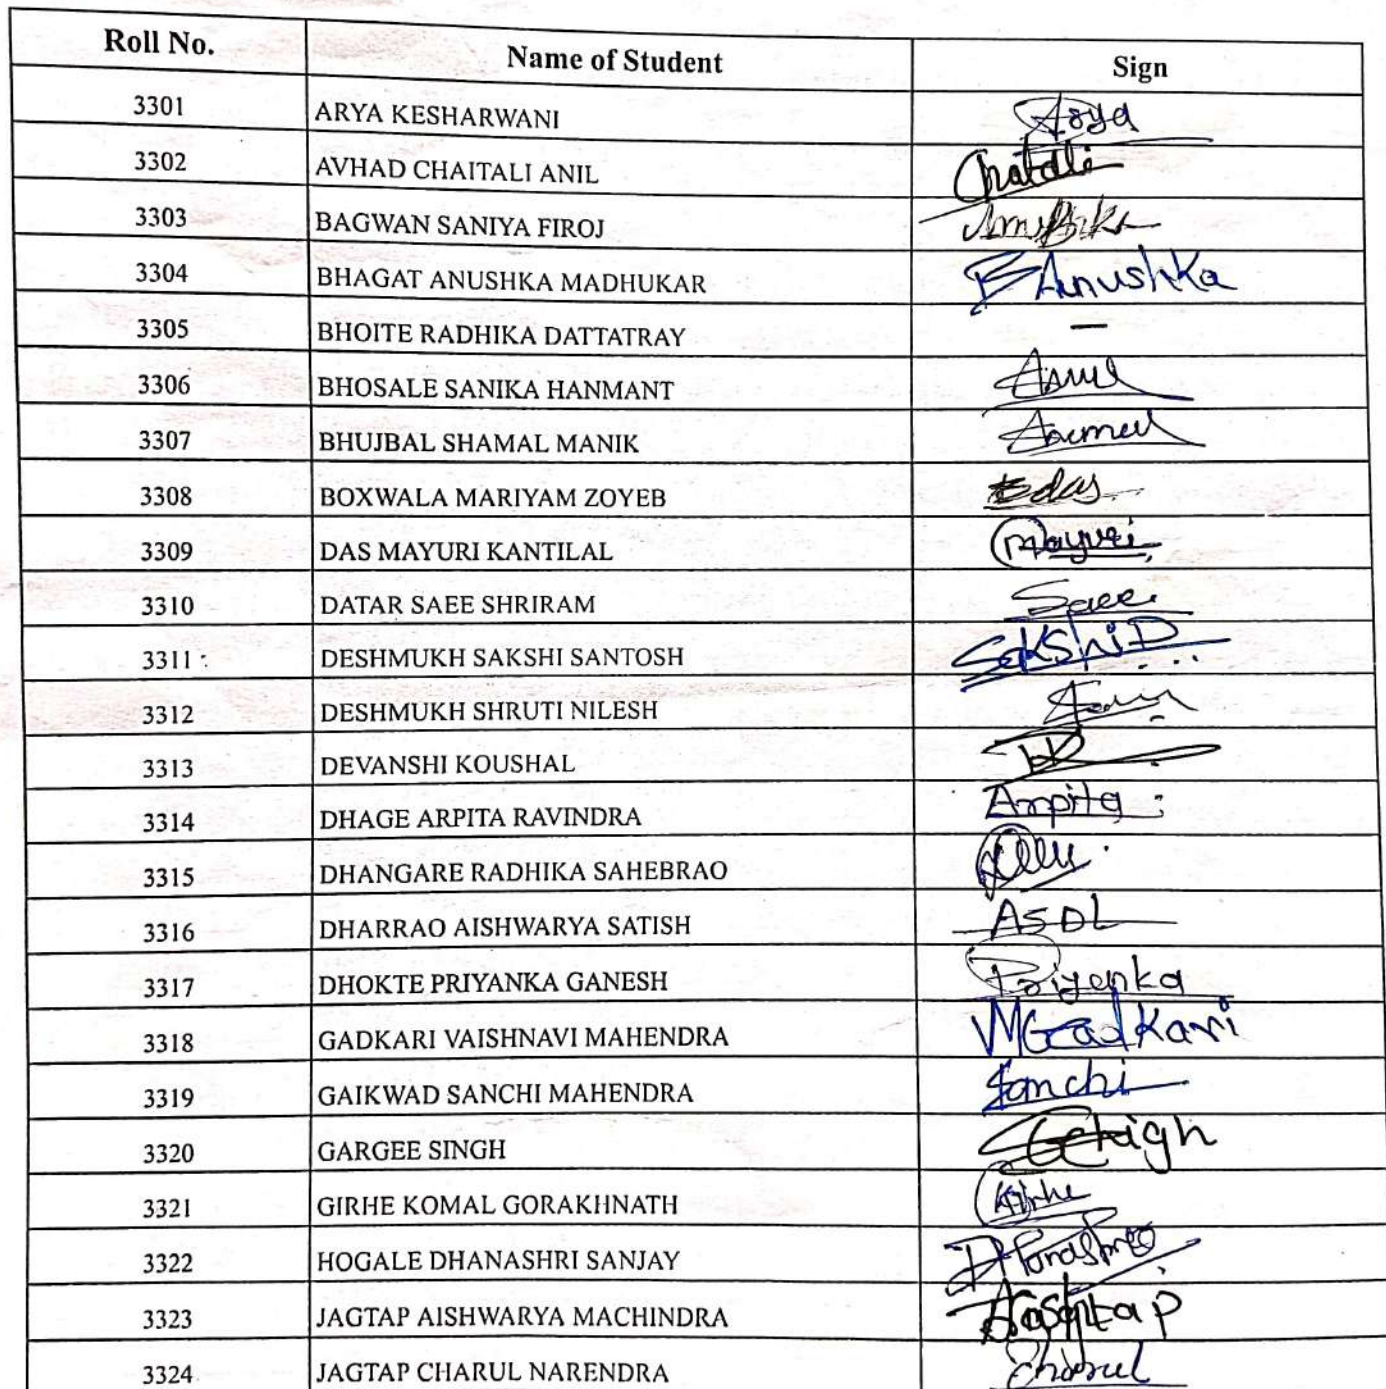 Roll No. Name of Student Sign
3301 ARYA KESHARWANI Arya
3302 AVHAD CHAITALI ANIL Chaitali
3303 BAGWAN SANIYA FIROJ
3304 BHAGAT ANUSHKA MADHUKAR B Anushka
3305 BHOITE RADHIKA DATTATRAY —
3306 BHOSALE SANIKA HANMANT
3307 BHUJBAL SHAMAL MANIK
3308 BOXWALA MARIYAM ZOYEB
3309 DAS MAYURI KANTILAL Mayuri
3310 DATAR SAEE SHRIRAM Saee
3311 DESHMUKH SAKSHI SANTOSH Sakshi D
3312 DESHMUKH SHRUTI NILESH
3313 DEVANSHI KOUSHAL
3314 DHAGE ARPITA RAVINDRA Arpita
3315 DHANGARE RADHIKA SAHEBRAO
3316 DHARRAO AISHWARYA SATISH
3317 DHOKTE PRIYANKA GANESH Priyanka
3318 GADKARI VAISHNAVI MAHENDRA VMGadkari
3319 GAIKWAD SANCHI MAHENDRA Sanchi
3320 GARGEE SINGH
3321 GIRHE KOMAL GORAKHNATH
3322 HOGALE DHANASHRI SANJAY Dhanashree
3323 JAGTAP AISHWARYA MACHINDRA
3324 JAGTAP CHARUL NARENDRA Charul